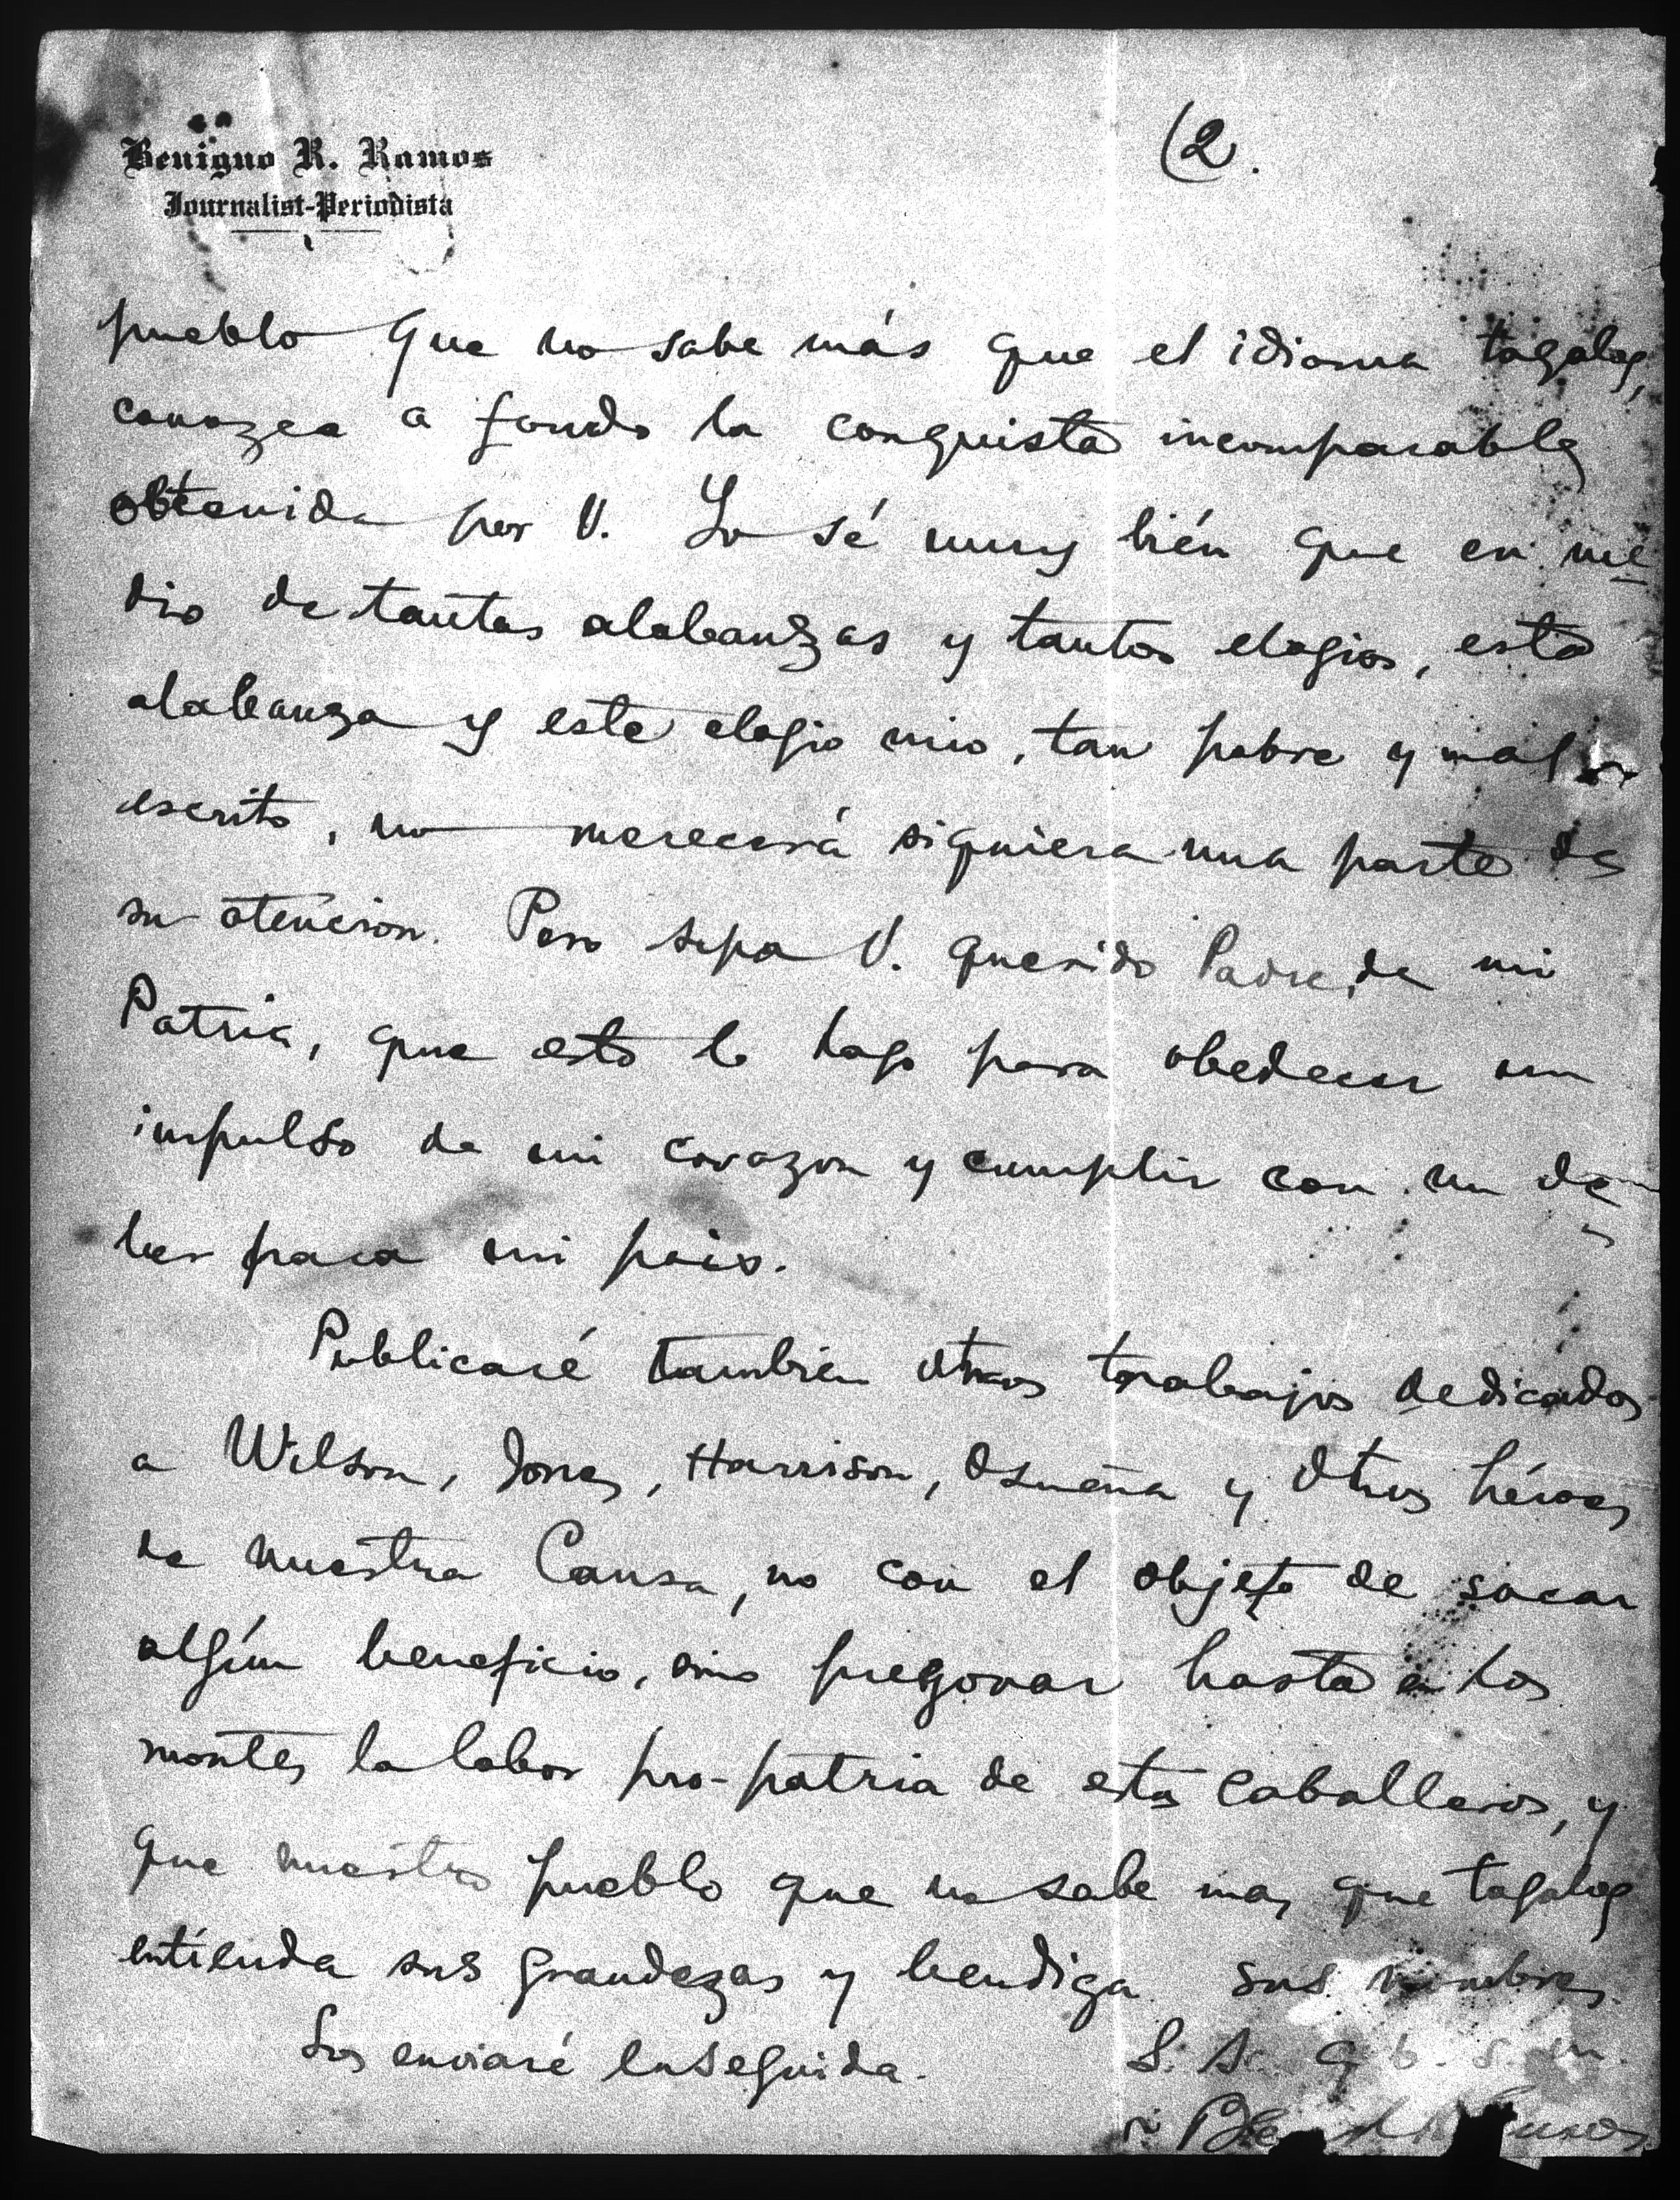 Benigno R. Ramos
Journalist-Periodista
(2.
pueblo que no sabe más que el idioma tagalog,
conozca a fondo la conquista incomparable
obtenida por V. Lo sé muy bién que en me
dio de tantas alabanzas y tantos elogios, esta
alabanza y este elogio mio, tan pobre y mal
escrito, no merecerá siquiera una parte de
su atencion. Pero sepa V. querido Padre, de mi
Patria, que esto lo hago para obedecer un
impulso de mi corazon y cumplir con un de
ber para mi pais.
Publicaré tambien otros trabajos dedicados
a Wilson, Jones, Harrison, Osmeña y otros héroes
de nuestra Causa, no con el objeto de sacar
algún beneficio, sino pregonar hasta en los
montes la labor pro-patria de estos caballeros, y
que nuestro pueblo que no sabe mas que tagalog
entienda sus grandezas y bendiga sus nombres.
Los enviaré enseguida. S. S. q. b. s. m.